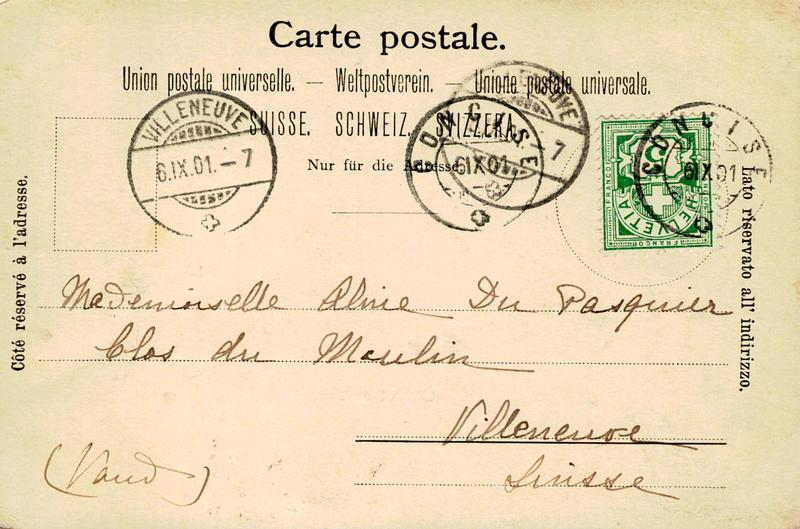 Carte postale.
Union postale universelle. — Weltpostverein. — Unione postale universale.
SUISSE. SCHWEIZ. SVIZZERA.
Nur für die Adresse.
Côté réservé à l'adresse.
Lato riservato all' indirizzo.
VILLENEUVE
6.IX.01.–7
CONCISE
6 IX 01
VILLENEUVE
–7
CONCISE
6 IX 01
FRANCO
HELVETIA
5
FRANCO
Mademoiselle Aline Du Pasquier
Clos du Moulin
Villeneuve
(Vaud)
Suisse